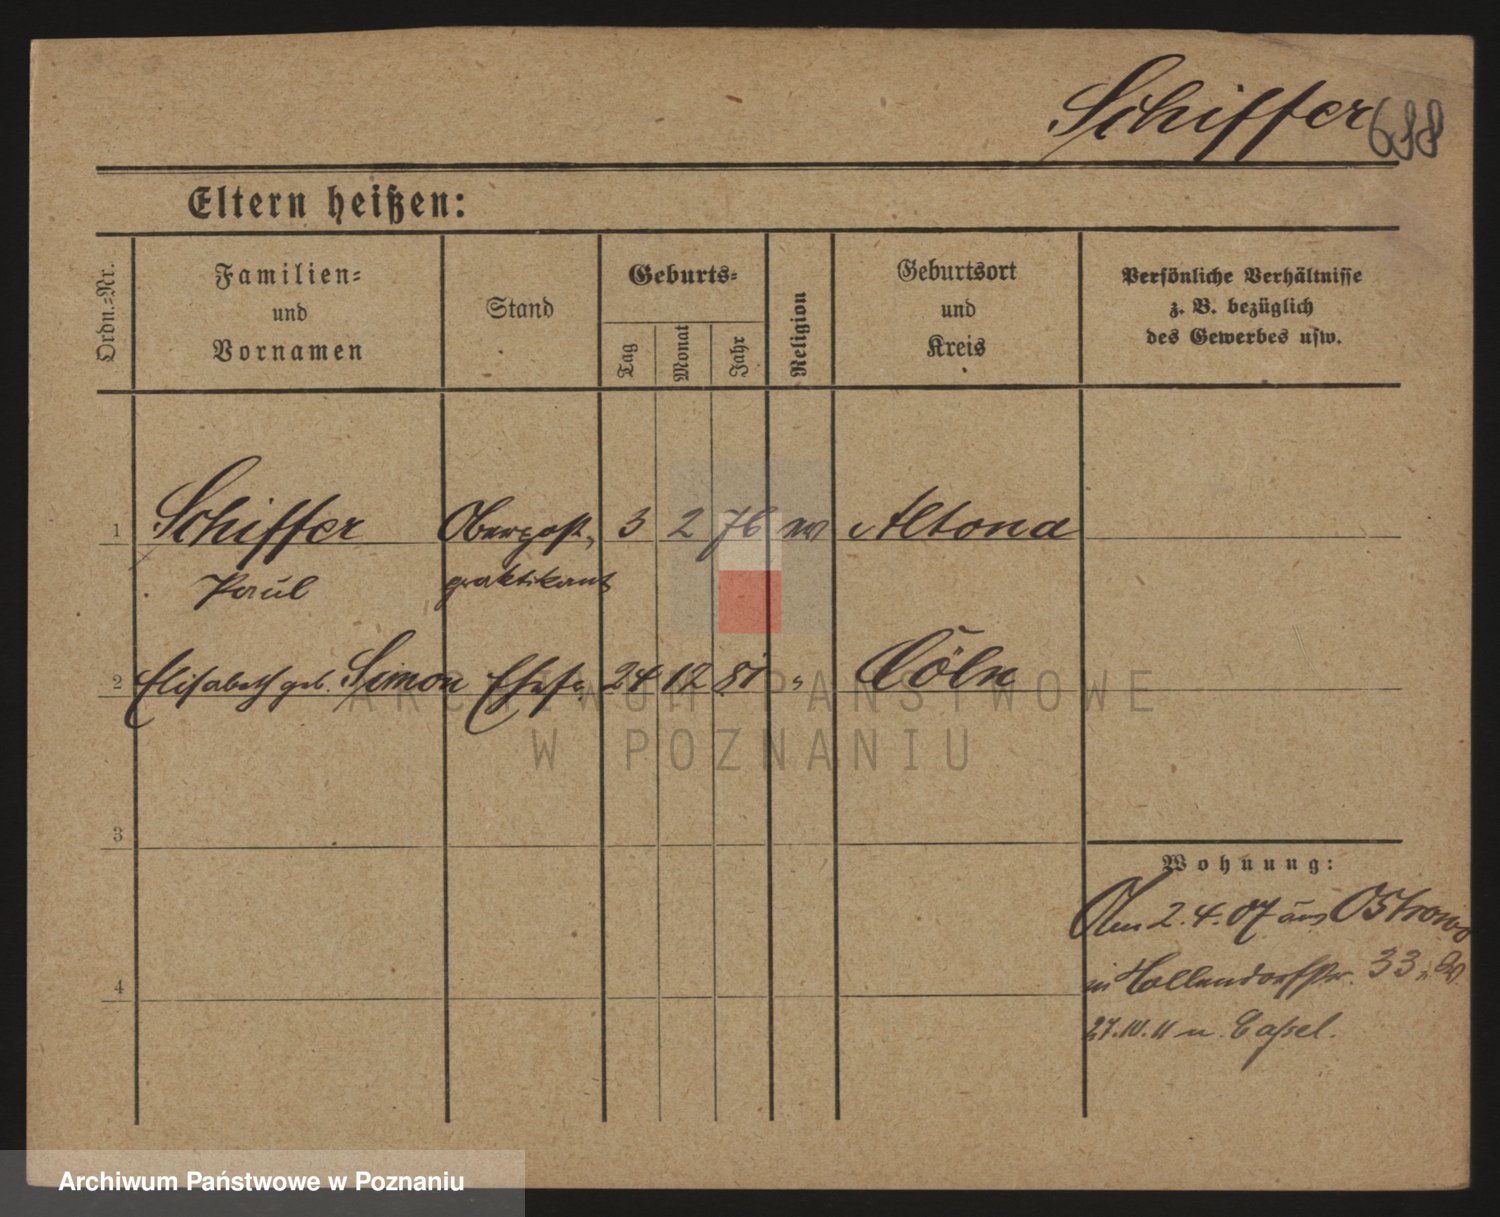 Schiffer 688
Eltern heißen:
Ordn.-Nr.
Familien-
und
Vornamen
Stand
Geburts-
Tag
Monat
Jahr
Religion
Geburtsort
und
Kreis
Persönliche Verhältnisse
z. B. bezüglich
des Gewerbes usw.
1 Schiffer Oberpost- 3 2 76 ev Altona
Paul praktikant
2 Elisabeth geb. Simon Ehefr. 24 12 81 " Cöln
3
4
Wohnung:
Am 2.4.07 aus Ostrowo
in Hollendorfstr. 33
27.10.11 n. Cassel.
ARCHIWUM PAŃSTWOWE
W POZNANIU
Archiwum Państwowe w Poznaniu